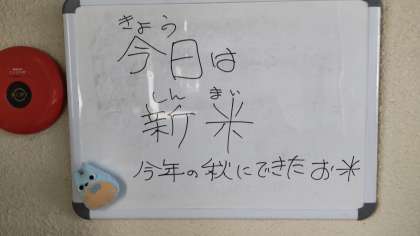 きょう
今日は
しん まい
新米
今年の秋にできたお米